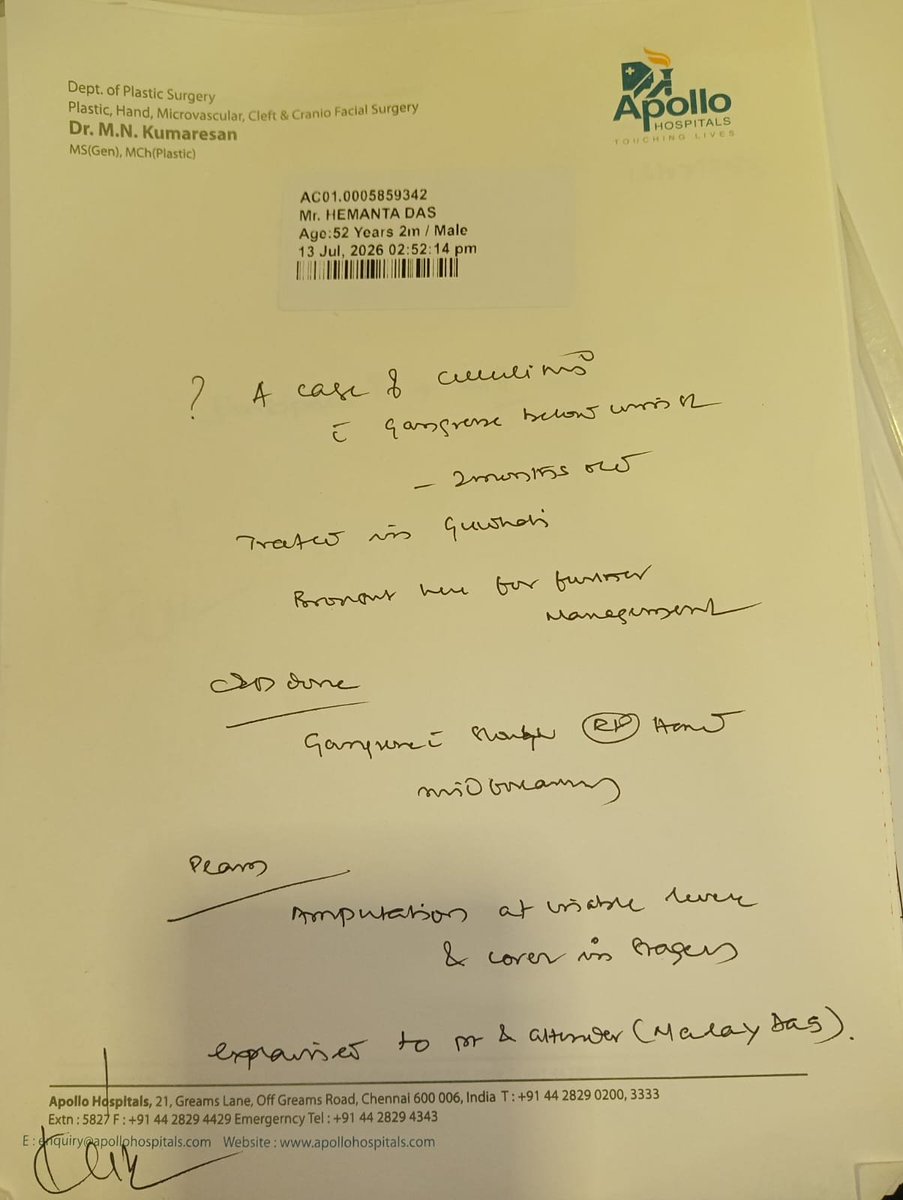 Dept. of Plastic Surgery
Plastic, Hand, Microvascular, Cleft & Cranio Facial Surgery
Dr. M.N. Kumaresan
MS(Gen), MCh(Plastic)
Apollo
HOSPITALS
TOUCHING LIVES
AC01.0005859342
Mr. HEMANTA DAS
Age:52 Years 2m / Male
13 Jul, 2026 02:52:14 pm
? A case of cellulitis
c̄ Gangrene below wrist
- 2 months old
Treated in Guwhati
Brought here for further
management
done
Gangrene c̄ slough Hand
mid forearm
Plan
Amputation at viable level
& cover in stages
explained to pt & attender (Malay Das).
Apollo Hospitals, 21, Greams Lane, Off Greams Road, Chennai 600 006, India T : +91 44 2829 0200, 3333
Extn : 5827 F : +91 44 2829 4429 Emergerncy Tel : +91 44 2829 4343
E : enquiry@apollohospitals.com Website : www.apollohospitals.com